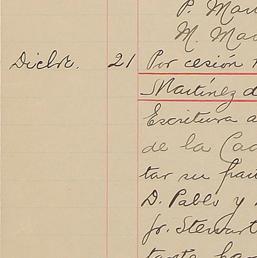 P. Mar
M. Mar
Dicbre. 21 Por cesión
Martínez d
Escritura a
de la Ca
tar su fian
D. Pablo y
Jr. Stewart
tante ha